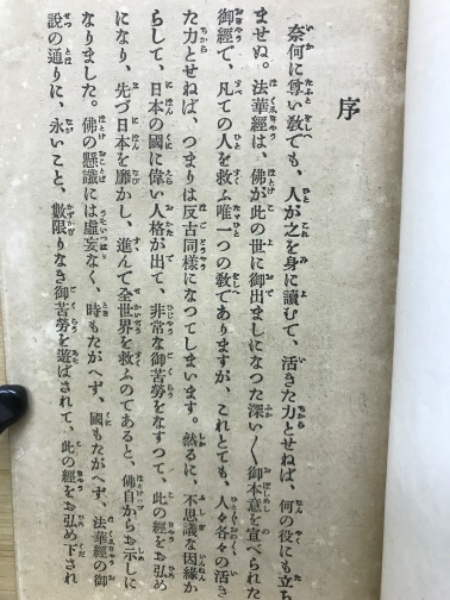 序
奈何に尊い敎でも、人が之を身に讀むで、活きた力とせねば、何の役にも立ち
ませぬ。法華經は、佛が此の世に御出ましになつた深い〱御本意を宣べられた
御經で、凡ての人を救ふ唯一つの敎でありますが、これとても、人々各々の活き
た力とせねば、つまりは反古同樣になつてしまいます。然るに、不思議な因緣か
らして、日本の國に偉い人格が出て、非常な御苦勞をなすつて、此の經をお弘め
になり、先づ日本を靡かし、進んで全世界を救ふのであると、佛自からお示しに
なりました。佛の懸讖には虛妄なく、時もたがへず、國もたがへず、法華經の御
說の通りに、永いこと、數限りなき御苦勞を遊ばされて、此の經をお弘め下され